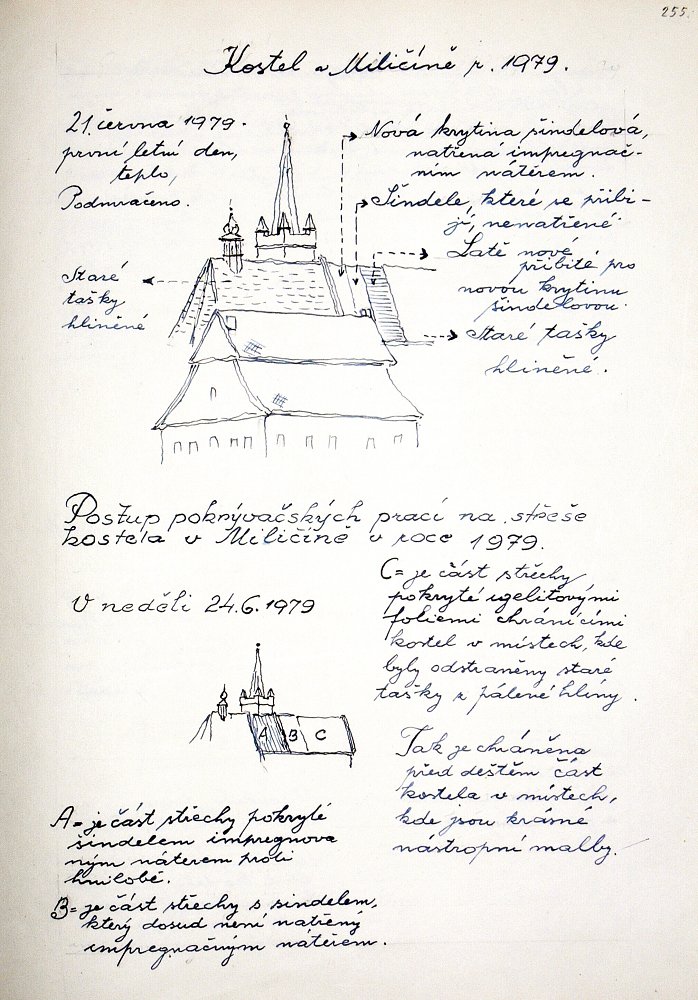 255.
Kostel v Miličíně r. 1979.
21. června 1979.
první letní den,
teplo,
Podmračeno.
Nová krytina šindelová,
natřená impregnač-
ním nátěrem.
Šindele, které se přibí-
jí, nenatřené
Latě nové
přibité pro
novou krytinu
šindelovou.
Staré tašky
hliněné.
Staré
tašky
hliněné
Postup pokrývačských prací na střeše
kostela v Miličíně v roce 1979.
V neděli 24.6.1979
C = je část střechy
pokryté igelitovými
foliemi chránícími
kostel v místech, kde
byly odstraněny staré
tašky z pálené hlíny.
A B C
Tak je chráněna
před deštěm část
kostela v místech,
kde jsou krásné
nástropní malby.
A = je část střechy pokryté
šindelem impregnova
ným náterem proti
hnilobě.
B = je část střechy s šindelem,
který dosud není natřený
impregnačným nátěrem.